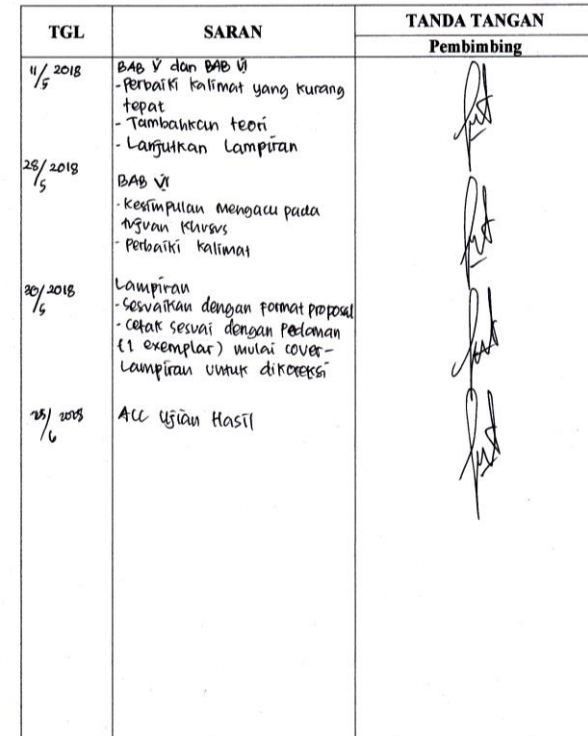 TGL SARAN TANDA TANGAN
Pembimbing
11/5 2018 BAB V dan BAB VI
- Perbaiki kalimat yang kurang
tepat
- Tambahkan teori
- Lanjutkan Lampiran
28/5 2018
BAB VI
- Kesimpulan mengacu pada
tujuan khusus
- Perbaiki kalimat
30/5 2018 Lampiran
- Sesuaikan dengan format proposal
- Cetak sesuai dengan Pedoman
(1 exemplar) mulai cover-
Lampiran untuk dikoreksi
25/6 2018 ACC Ujian Hasil